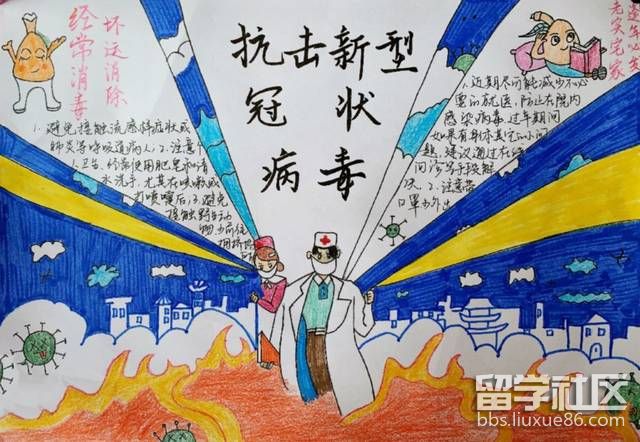 抗击新型
冠状
病毒
经常消毒
坏运消除
1.避免接触流感样症状或
肺炎等呼吸道病人;2.注意个
人卫生,经常使用肥皂和清
水洗手,尤其在咳嗽或
打喷嚏后;3.避免
接触野生动
物,勿前往
老实宅家
1.近期尽可能减少不必
要的就医,防止在院内
感染病毒.过年期间
如果有身体其它的小问
题,建议通过在线
问诊等手段解
决.2.注意带
口罩外出
留学社区
bbs.liuxue86.com